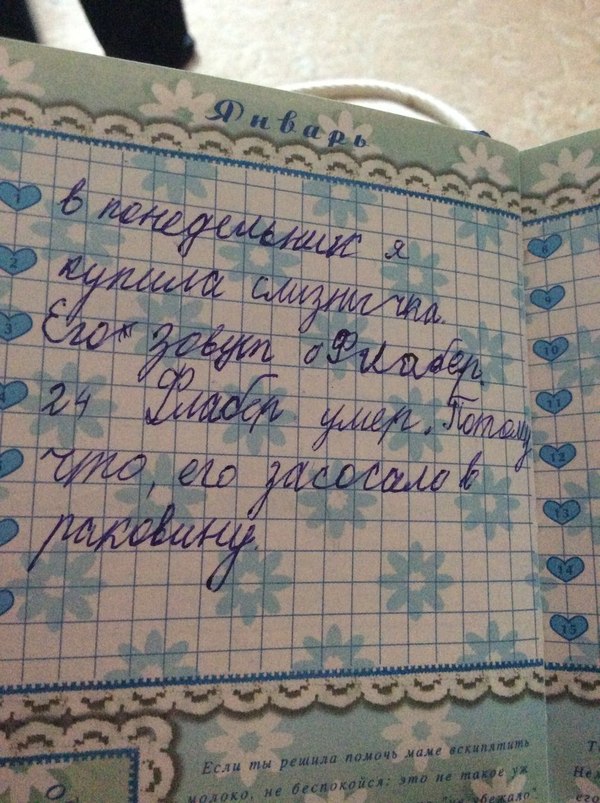 Январь
1
в понедельник я
2
купила слизнычка.
3
Его зовут Флабер.
4
24 Флабер умер. Потому
что, его засосало в
раковину.
9
10
11
12
13
14
15
Если ты решила помочь маме вскипятить
молоко, не беспокойся: это не такое уж
убежало"